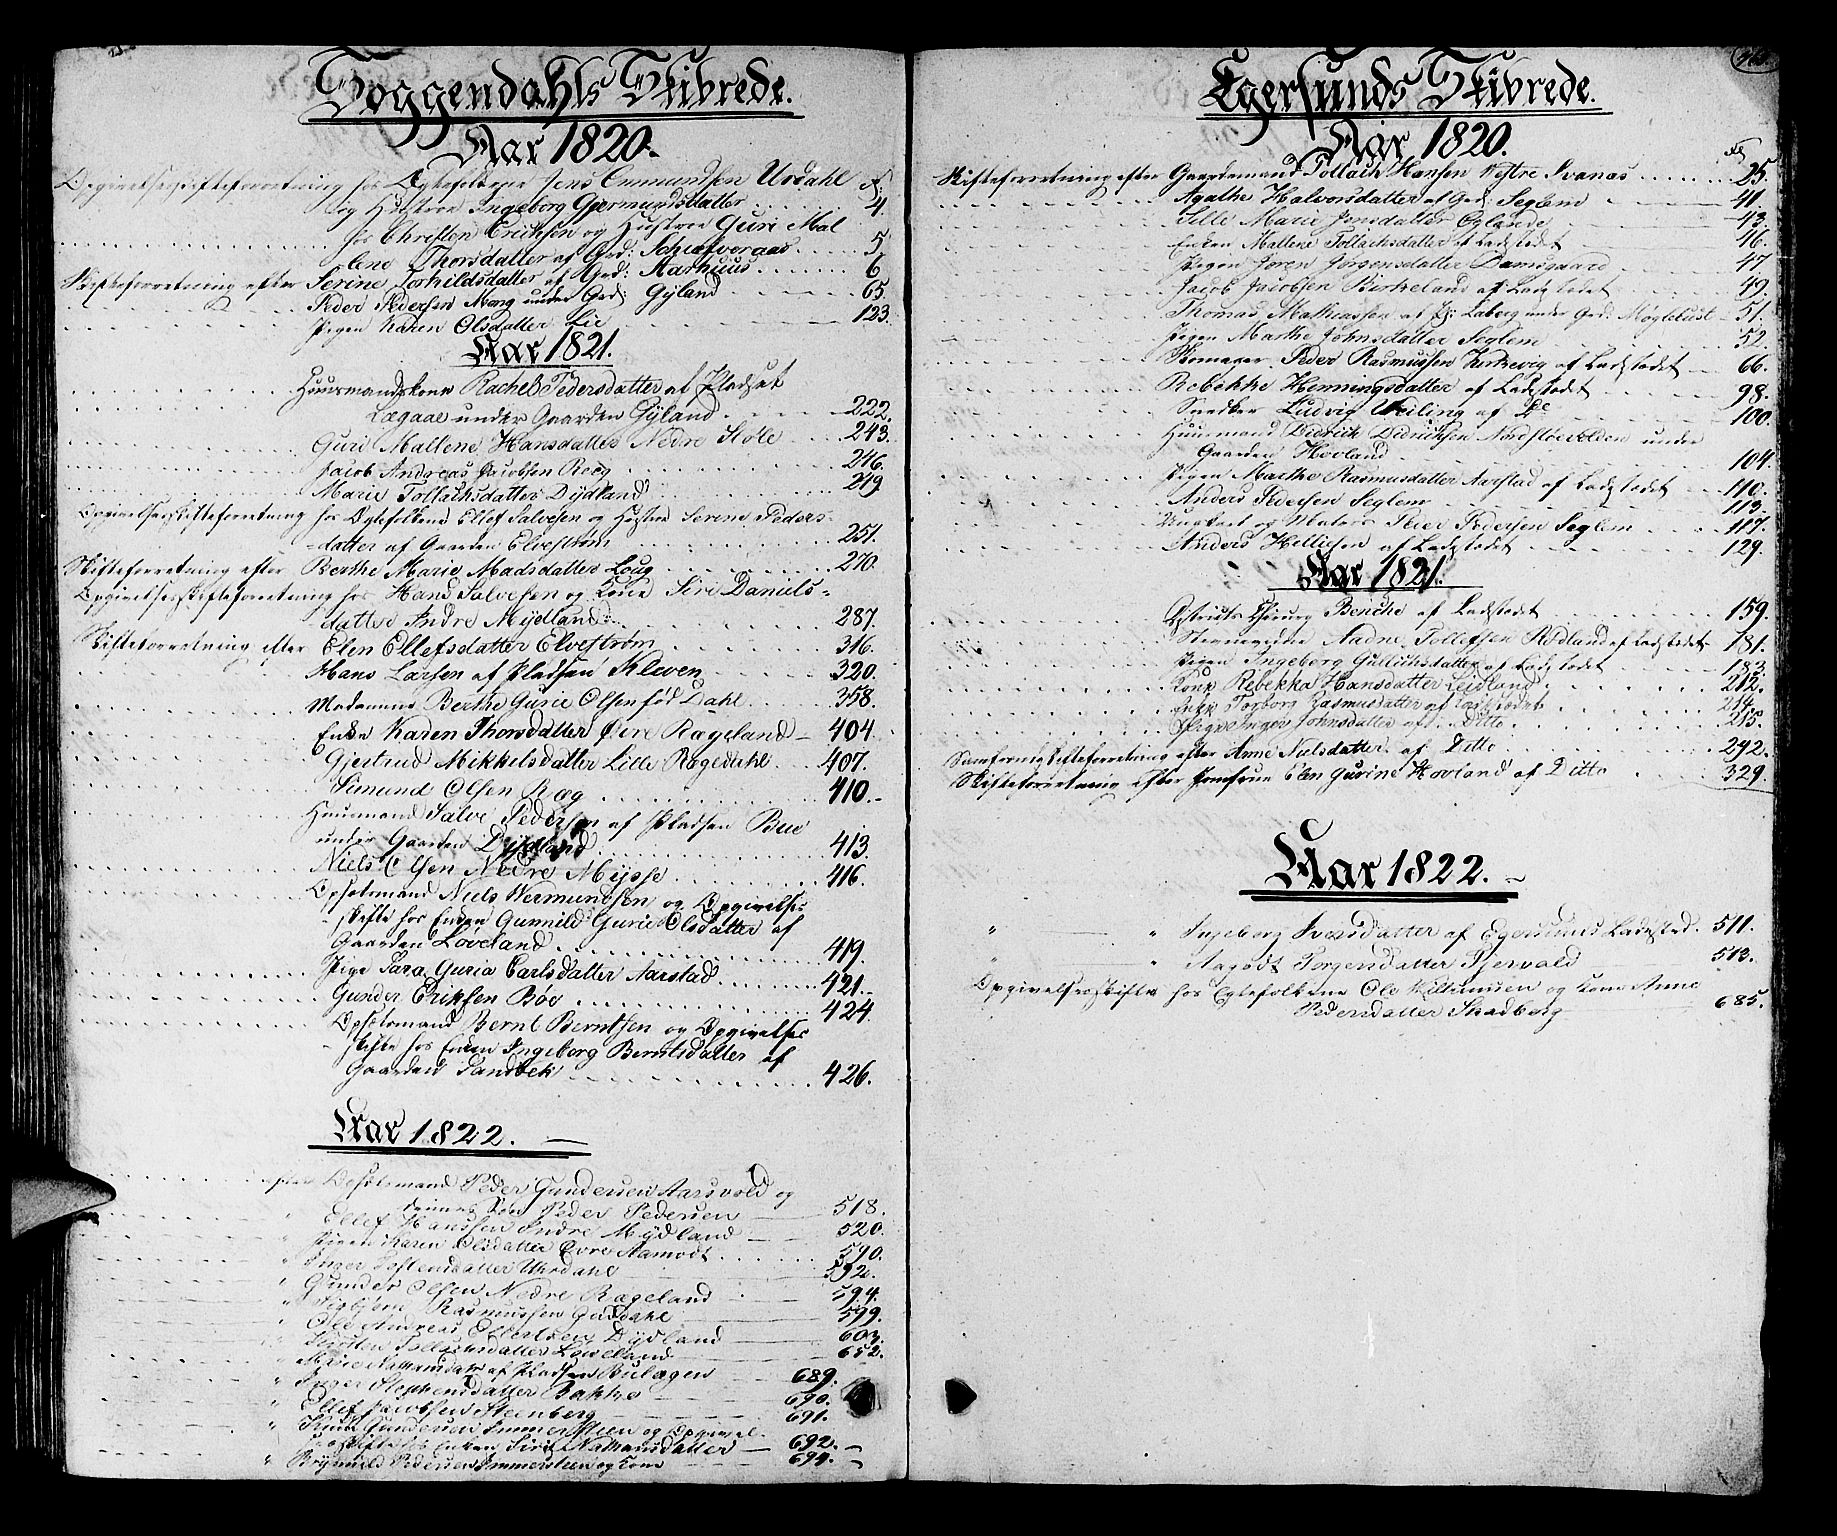 Soggendahls Skibrede.
Aar 1820.
Opgivelsesskifteforretning hos Egtefolkene Jens Ommundsen Urdahl
og Hustroe Ingeborg Gjermundsdatter 4.
hos Christen Eriksen og Hustroe Guri Mal
lene Thorsdatter af Grd: 5
Skifteforretning efter Serine Torkildsdatter af Grd: Aarhuus 6
Peder Pedersen Mong under Grd: Gyland 65
Pigen Karen Olsdatter Lie 123.
Aar 1821.
Huusmandskone Rachel Pedersdatter af Pladset
Lægaae under Gaarden Gyland 222.
Guri Mallene Hansdatter Nedre Støle 243.
Jacob Andreas Jacobsen Roeg 246.
Marie Tollachsdatter Dydland 249
Opgivelsesskifteforretning hos Egtefolkene Ellef Salvesen og Hustroe Serine Peders-
datter af Gaarden Elvestrøm 251.
Skifteforretning efter Berthe Marie Madsdatter Loug 270.
Opgivelsesskifteforretning hos Hans Salvesen og Kone Siri Daniels=
datter Indre Mydland 287.
Skifteforretning efter Elen Ellefsdatter Elvestrøm 316.
Hans Larsen af Pladsen Kleven 320.
Madamme Berthe Gurie Olsen fød Dahl 358.
Enke Karen Thorsdatter Øvre Rægeland 404.
Gjertrud Mikkelsdatter Lille Ragedahl 407.
Simund Olsen Ræg 410.
Huusmand Salve Pedersen af Pladsen Bue
under Gaarden Dydland 413.
Niels Olsen Nedre Mysse 416.
Opsidsmand Niels Wermundsen og Opgivelses
skifte hos Enken Gunnild Gurie Olsdatter af
Gaarden Löveland 419.
Pige Sara Guria Carlsdatter Aarstad 421.
Gunder Eriksen Bøe 424.
Opsidsmand Bernt Berntsen og Opgivelses
skifte hos Enken Ingeborg Berntsdatter af
Gaarden Sandbek 426.
Aar 1822.
efter Opsidsmand Peder Gundersen Aarsvold og
Peder Pedersen 518.
Ellef Hanssen Indre Mydland 520.
Pigen Karen Olsdatter Evre Aamodt 590.
Inger Testensdatter Uhrdahl 592.
Gunder Olsen Nedre Rægeland 594.
Rasmussen Gaddahl 599.
Ole Andreas Ellertsen Dydland 603.
Kirsten Tollachsdatter Løveland 652.
Marie af Pladsen Bulægen 689.
Inger Stephensdatter Bakke 690.
Ellef Jacobsen Steenberg 691.
Knud Gundersen Immerstien og Opgivel-
sesskifte hos Enken Siri Nathansdatter 692.
Brynnild Pedersen Immerstein og Kone 694.
Egersunds Skibrede.
Aar 1820.
Skifteforretning efter Gaardemand Tollach Hansen Vestre Svanæs 25.
Agathe Halvorsdatter af Grd: Seglem 41.
Sille Marie Jensdatter Eglande 43.
Enken Mallene Tollachsdatter af Ladstedet 46.
Pigen Joren Jørgensdatter Damsgaard 47
Jacob Jacobsen Birkeland af Ladstedet 49.
Thomas Mathiassen af Pl: Laberg under Grd: Møglebust 51.
Pigen Marthe Johnsdatter Seglem 52.
Skomager Peder Rasmussen Kirkevig af Ladstedet 66.
Rebekke Henningsdatter af Ladstedet 98.
Snedker Ludvig Weiling af Do 100.
Huusmand Didrich Didrichsen Nordsløevolden under
Gaarden Hovland 104.
Pigen Marthe Rasmusdatter Aarstad af Ladstedet 110.
Anders Pedersen Seglem 113.
Ungkarl og Matros Peder Pedersen Seglem 117.
Anders Hellisen af Ladstedet 129.
Aar 1821.
Districts Chirurg Benche af Ladstedet 159.
Steenmynder Aadne Tollefsen Rødland af Ladstedet 181.
Pigen Ingeborg Gullichsdatter af Ladstedet 183.
Kone Rebekka Hansdatter Leidland 212.
Enke Torborg Rasmusdatter af Ladstedet 214.
Pige Inger Johnsdatter af Ditto 215.
Samfrændskifteforretning efter Anne Nielsdatter af Ditto 292.
Skifteforretning efter Jomfrue Elen Gurine Hovland af Ditto 329.
Aar 1822.
" " Ingeborg Iversdatter af Egersunds Ladested. 511.
" " Aagodt Torgersdatter Tjervald 513.
Opgivelsesskifte hos Egtefolkene Ole Villumsen og Kone Anne
Pedersdatter Skadberg 685.